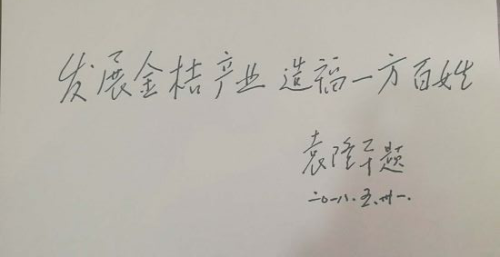 发展金桔产业 造福一方百姓
袁隆平题
二〇一八.五.卅一.